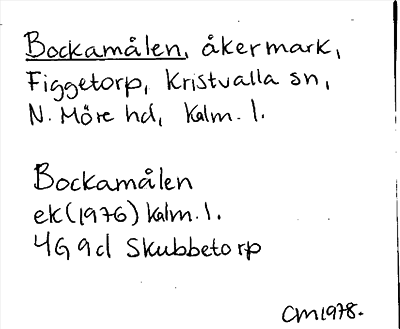 Bockamålen, åkermark,
Figgetorp, Kristvalla sn,
N. Möre hd, Kalm. l.
Bockamålen
ek (1976) Kalm. l.
4G 9d Skubbetorp
CM 1978.